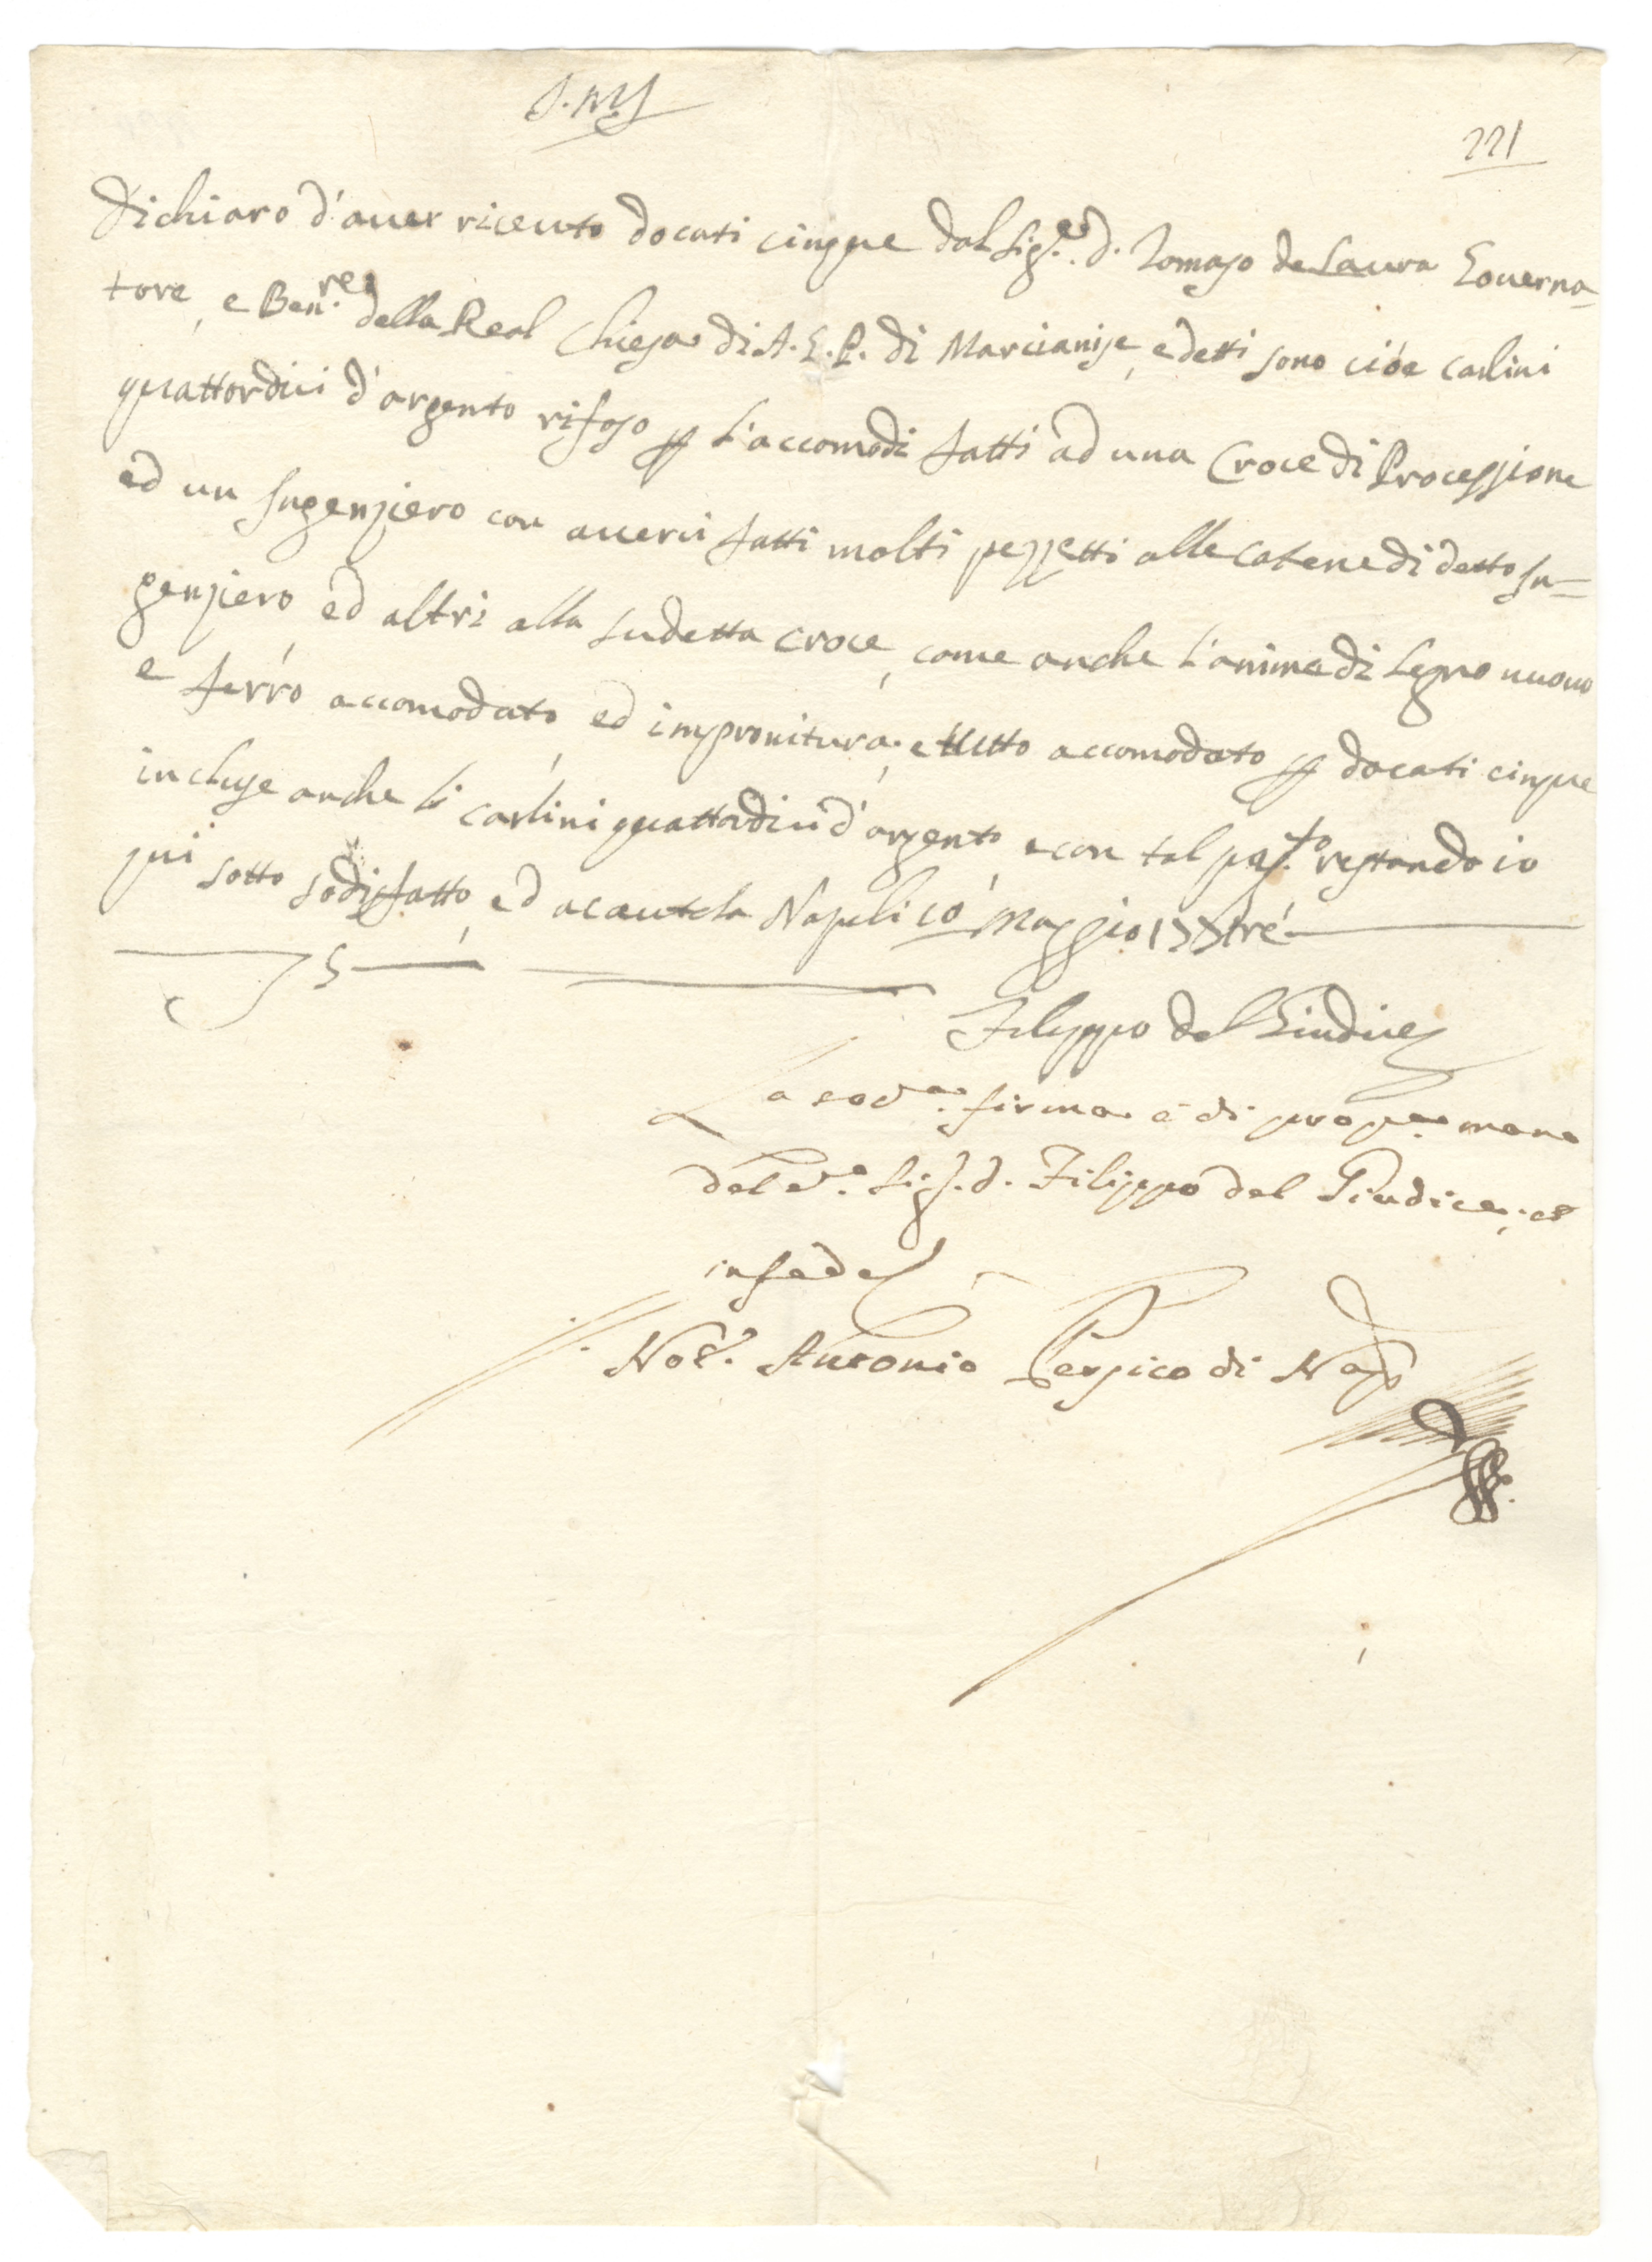 221
Dichiaro d'auer riceuto docati cinque dal Sig.re D. Tomaso de Laura Gouerna=
tore, e Ben.re della Real Chiesa di A. G. P. di Marcianise, e detti sono cióe carlini
quattordici d'argento rifoso p l'accomodi fatti ad una Croce di Processione
ed un Ingenziero con auerci fatti molti pezzetti alle catene di detto In=
genziero ed altri alla sudetta croce, come anche l'anima di legno nuouo
e ferro accomodato, ed impronitura, e tutto accomodato p docati cinque
incluse anche li carlini quattordici d'argento, e con tal pag.to restando io
qui sotto sodisfatto, ed a cautela Napoli 10 Maggio 177tré
5
Filippo del Giudice
La sod.a firma é di prop.a mano
del d.o Sig. D. Filippo del Giudice, et
in fede
Not. Antonio Persico di Nap